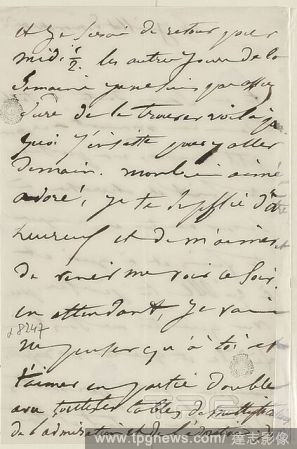 et je serai de retour pour
midi 1/2. les autres jours de la
semaine je ne suis pas assez
sûre de la trouver voilà p
quoi j'insiste pour y aller
demain. mon bien aimé
adoré, je te supplie d'être
heureux et de m'aimer et
de venir me voir ce soir,
en attendant, je vais
ne penser qu'à toi et
t'aimer en partie double
avec toutes les tables de multiplica
de l'admiration et de l'adoration de
d 8247
www.tpgnews.com / 達志影像